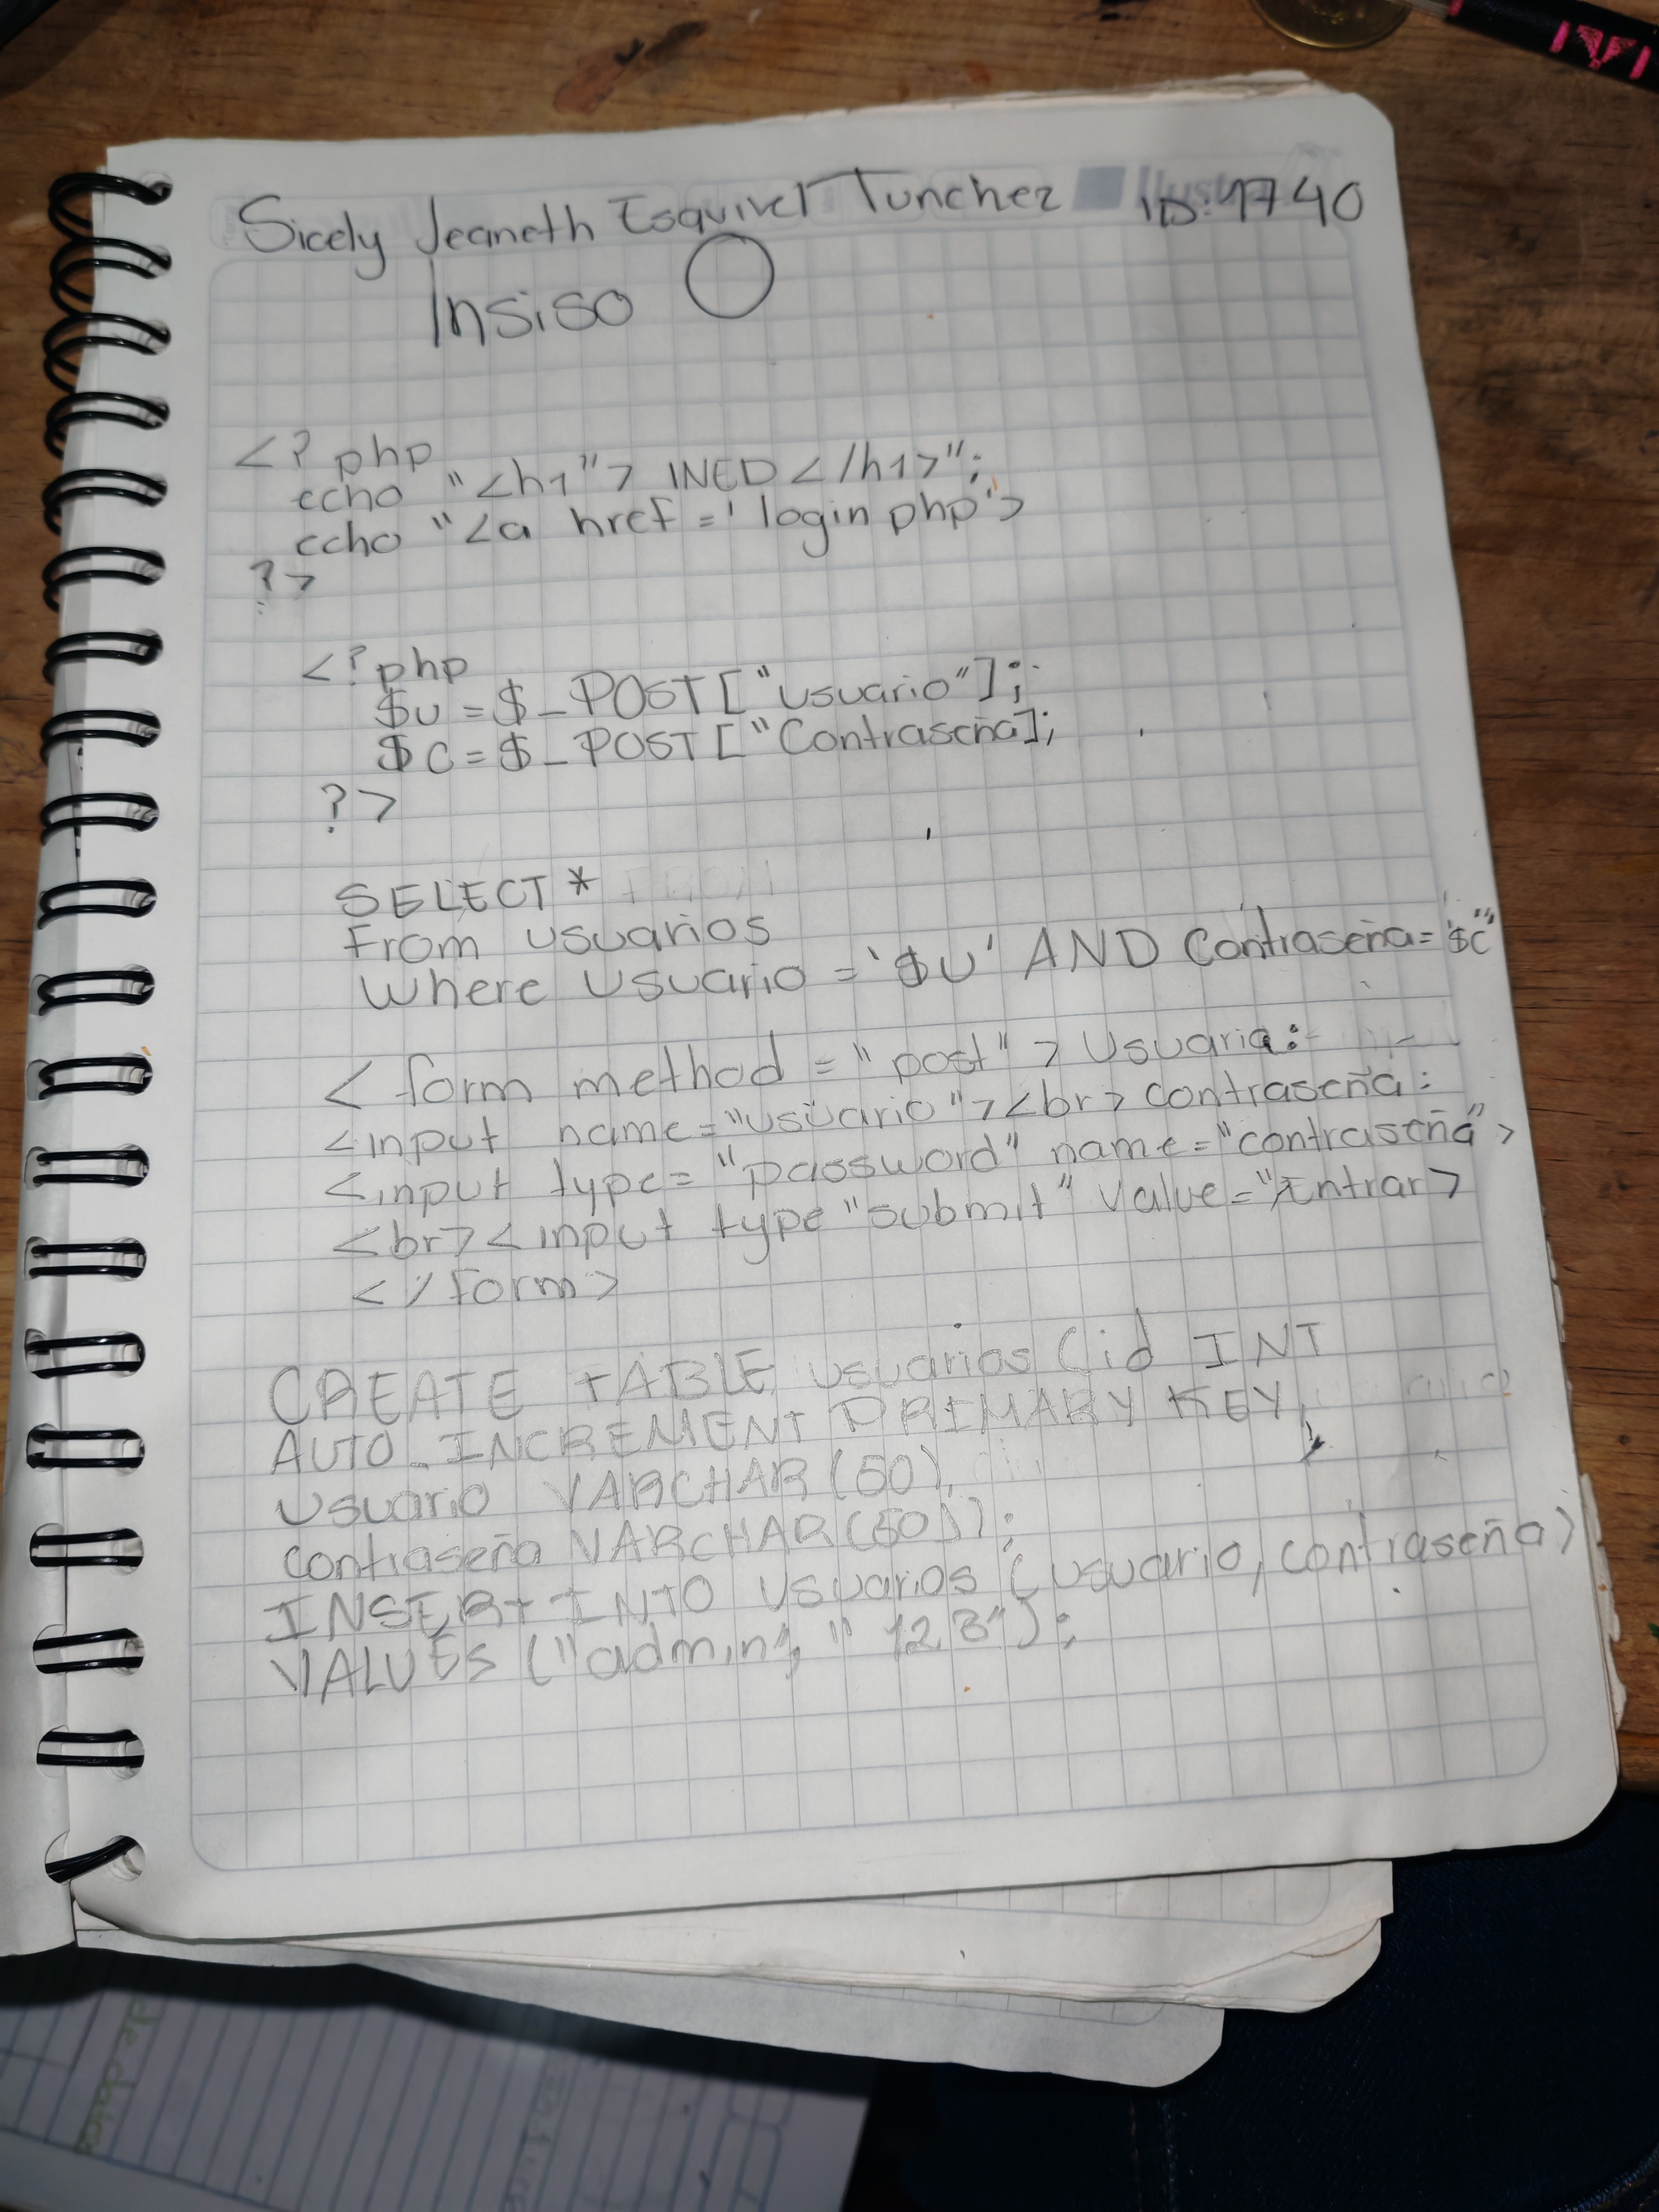 Sicely Jeaneth Esquivel Tunchez ID: 1740
Insiso
<? php
echo "<h1"> INED </h1>";
echo "<a href =' login php'>
?>
<?php
$u = $_POST ["usuario"];
$c = $_POST ["Contraseña];
?>
SELECT *
From usuarios
Where usuario = '$u' AND Contraseña= '$c'"
< form method = "post" > Usuaria:
<input name="usuario"><br> contraseña:
<input type= "password" name="contraseña">
<br><input type "submit" value="Entrar>
</form>
CREATE TABLE usuarios (id INT
AUTO_INCREMENT PRIMARY KEY,
usuario VARCHAR (50),
contraseña VARCHAR (50));
INSERT INTO usuarios (usuario, contraseña)
VALUES ("admin", "123");